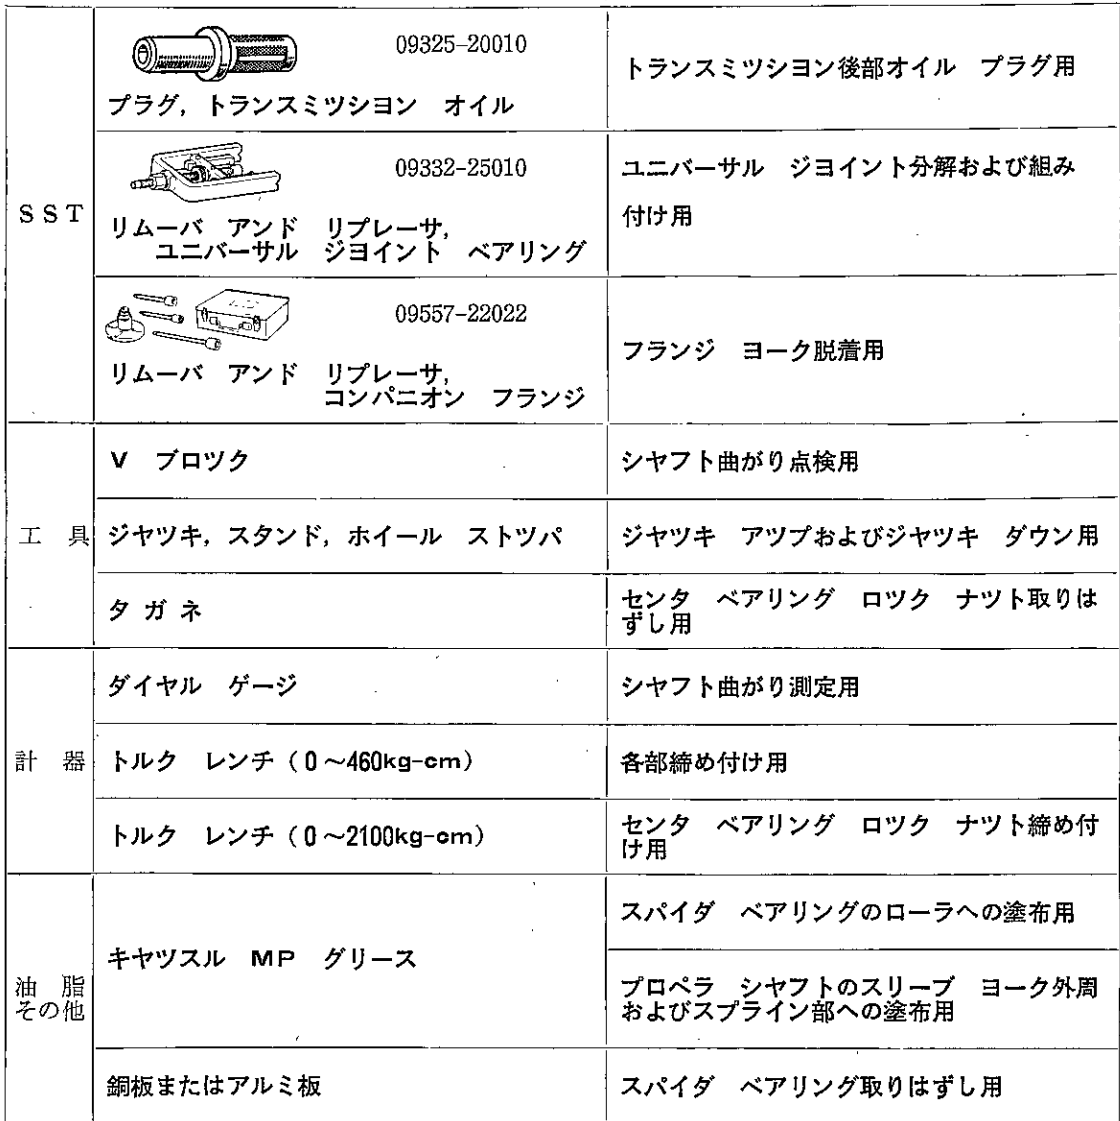 SST
09325-20010
プラグ，トランスミツシヨン　オイル
トランスミツシヨン後部オイル　プラグ用
09332-25010
リムーバ　アンド　リプレーサ，
ユニバーサル　ジヨイント　ベアリング
ユニバーサル　ジヨイント分解および組み
付け用
09557-22022
リムーバ　アンド　リプレーサ，
コンパニオン　フランジ
フランジ　ヨーク脱着用
工　具
V　ブロツク
シヤフト曲がり点検用
ジヤツキ，スタンド，ホイール　ストツパ
ジヤツキ　アツプおよびジヤツキ　ダウン用
タ ガ ネ
センタ　ベアリング　ロツク　ナツト取りは
ずし用
計　器
ダイヤル　ゲージ
シヤフト曲がり測定用
トルク　レンチ（0～460kg-cm）
各部締め付け用
トルク　レンチ（0～2100kg-cm）
センタ　ベアリング　ロツク　ナツト締め付
け用
油　脂
その他
キヤツスル　MP　グリース
スパイダ　ベアリングのローラへの塗布用
プロペラ　シヤフトのスリーブ　ヨーク外周
およびスプライン部への塗布用
銅板またはアルミ板
スパイダ　ベアリング取りはずし用